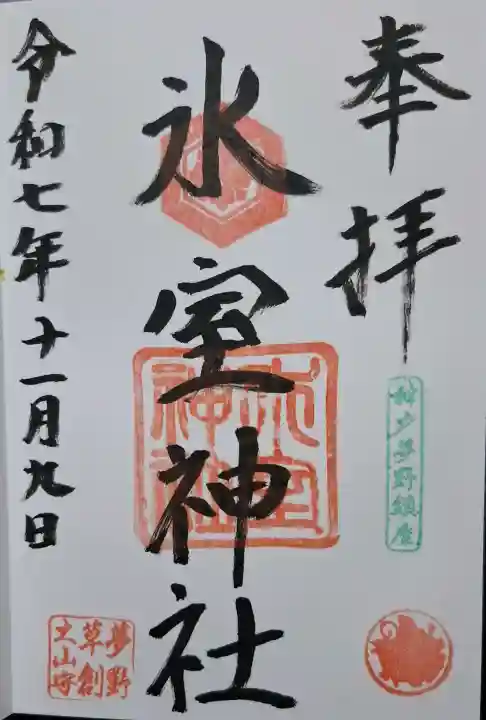 奉拝
神戸夢野鎮座
氷室神社
氷室
神社
令和七年十一月九日
夢野
草創